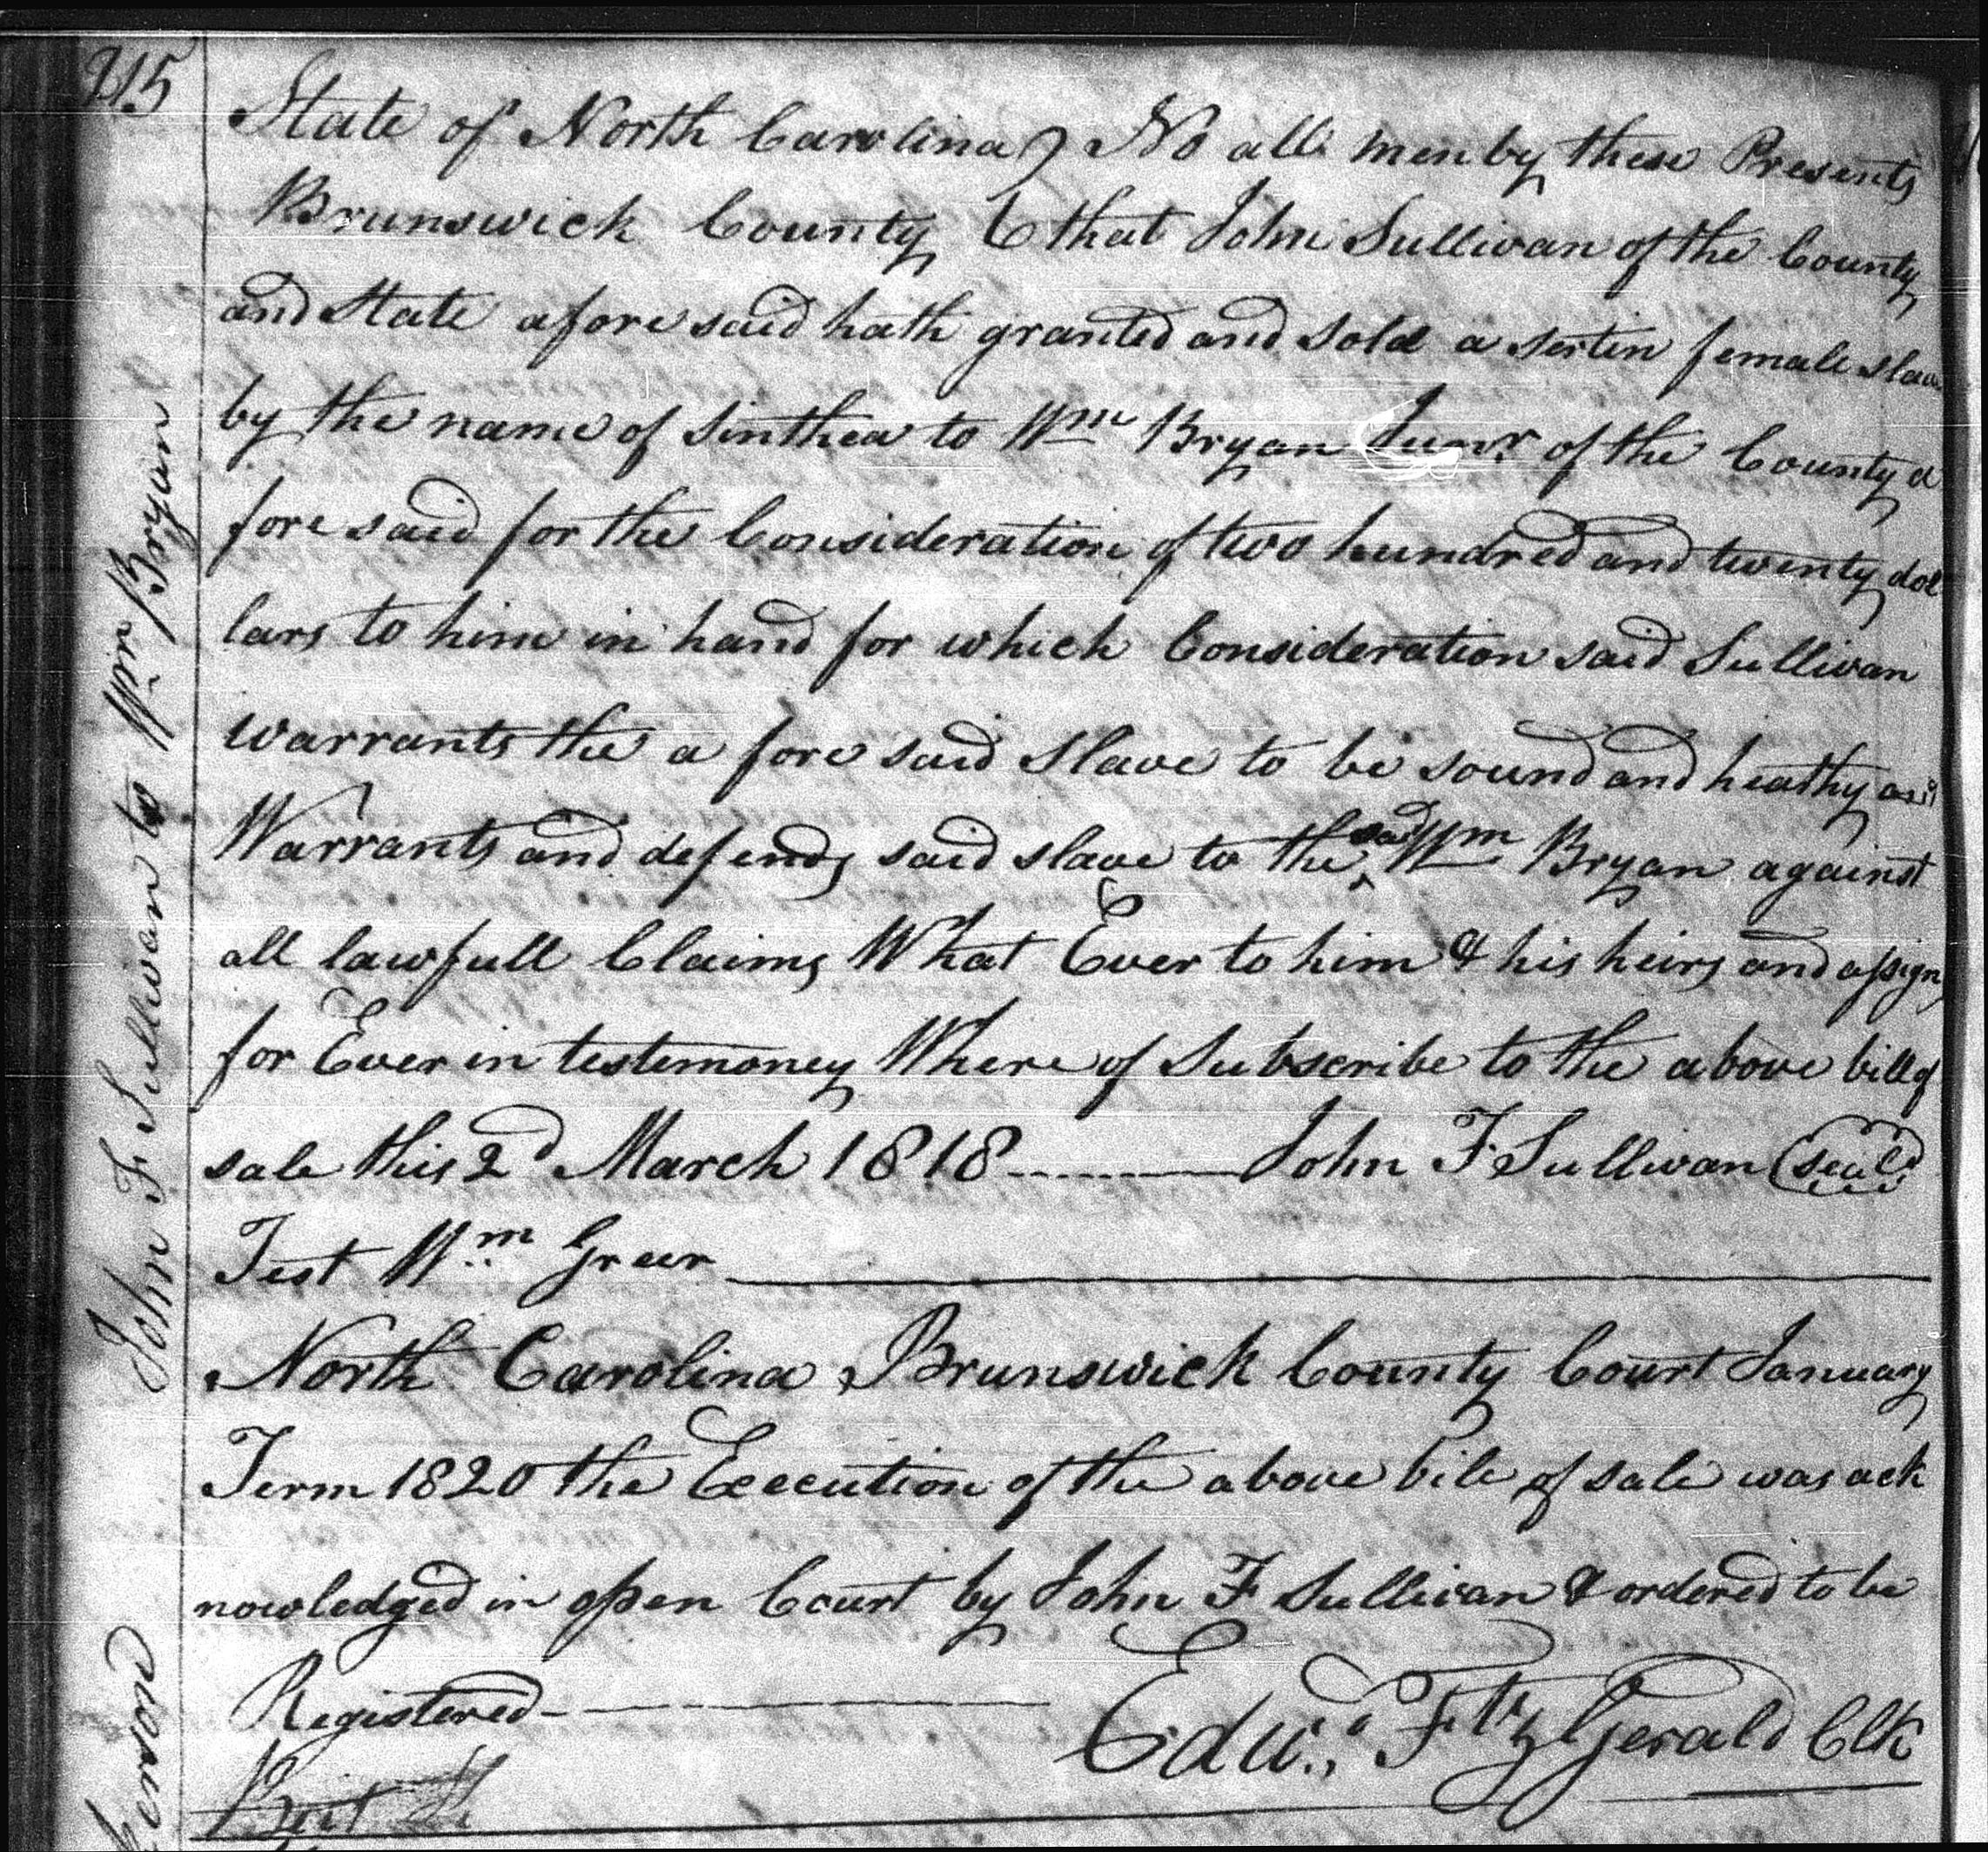 215
State of North Carolina } No all men by these Presents
Brunswick County } that John Sullivan of the County
and State afore said hath granted and sold a sertin female slave
by the name of Sinthea to Wm Bryan Junr of the County a
fore said for the Consideration of two hundred and twenty dol
lars to him in hand for which Consideration said Sullivan
warrants the a fore said slave to be sound and heathy and
Warrants and defends said slave to the said Wm Bryan against
all lawfull Claims What Ever to him & his heirs and assigns
for Ever in testemoney Where of Subscribe to the above bill of
sale this 2d March 1818 John F Sullivan (seal)
Test Wm Greer
North Carolina Brunswick County Court January
Term 1820 the Execution of the above bile of sale was ack
nowledged in open Court by John F Sullivan & ordered to be
Registered
Edwd FitzGerald Clk
John F Sullivan to Wm Bryan